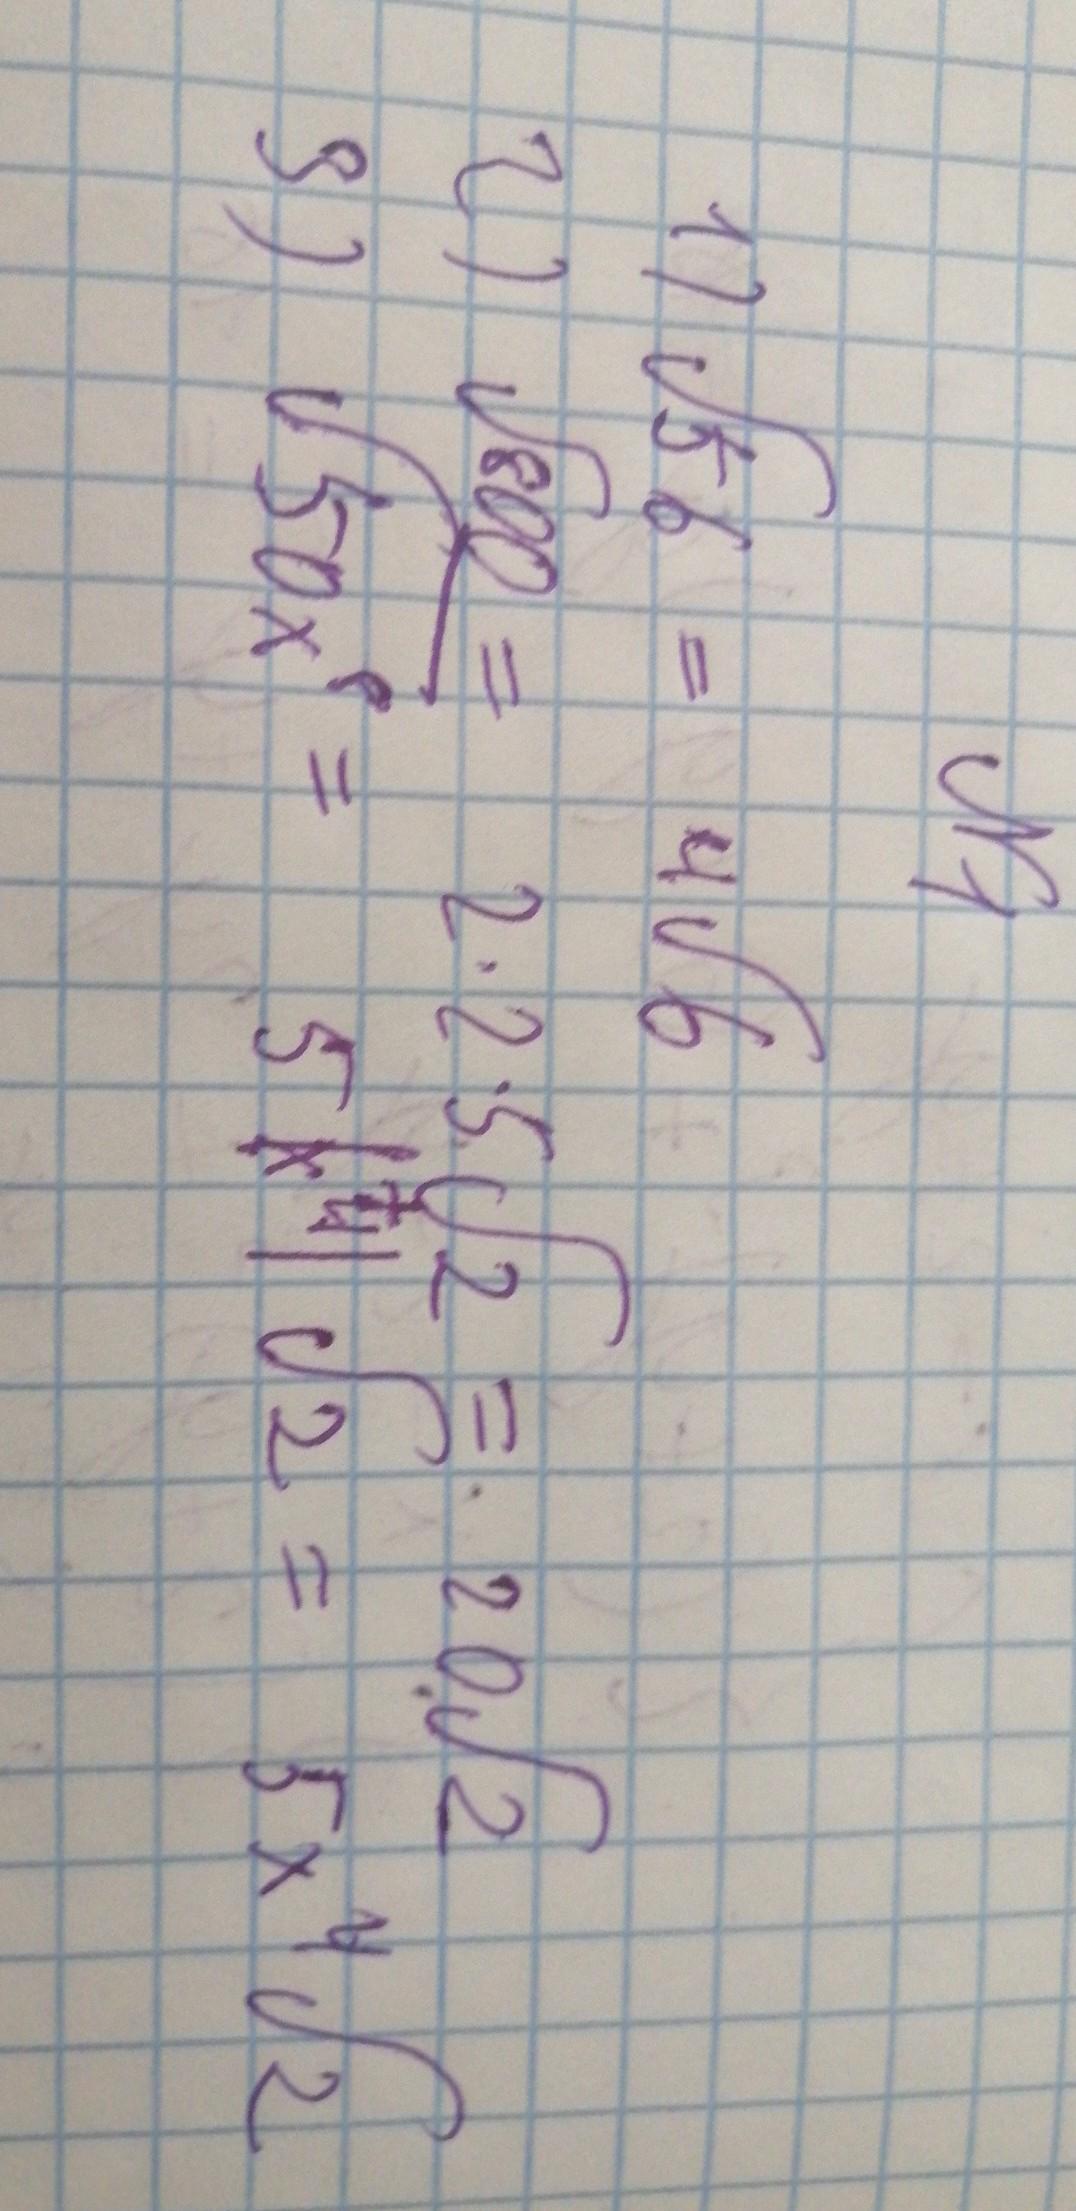 №1
1) √56 = 4√6
2) √800 = 2·2·5√2 = 20√2
3) √50x⁸ = 5|x⁴|√2 = 5x⁴√2